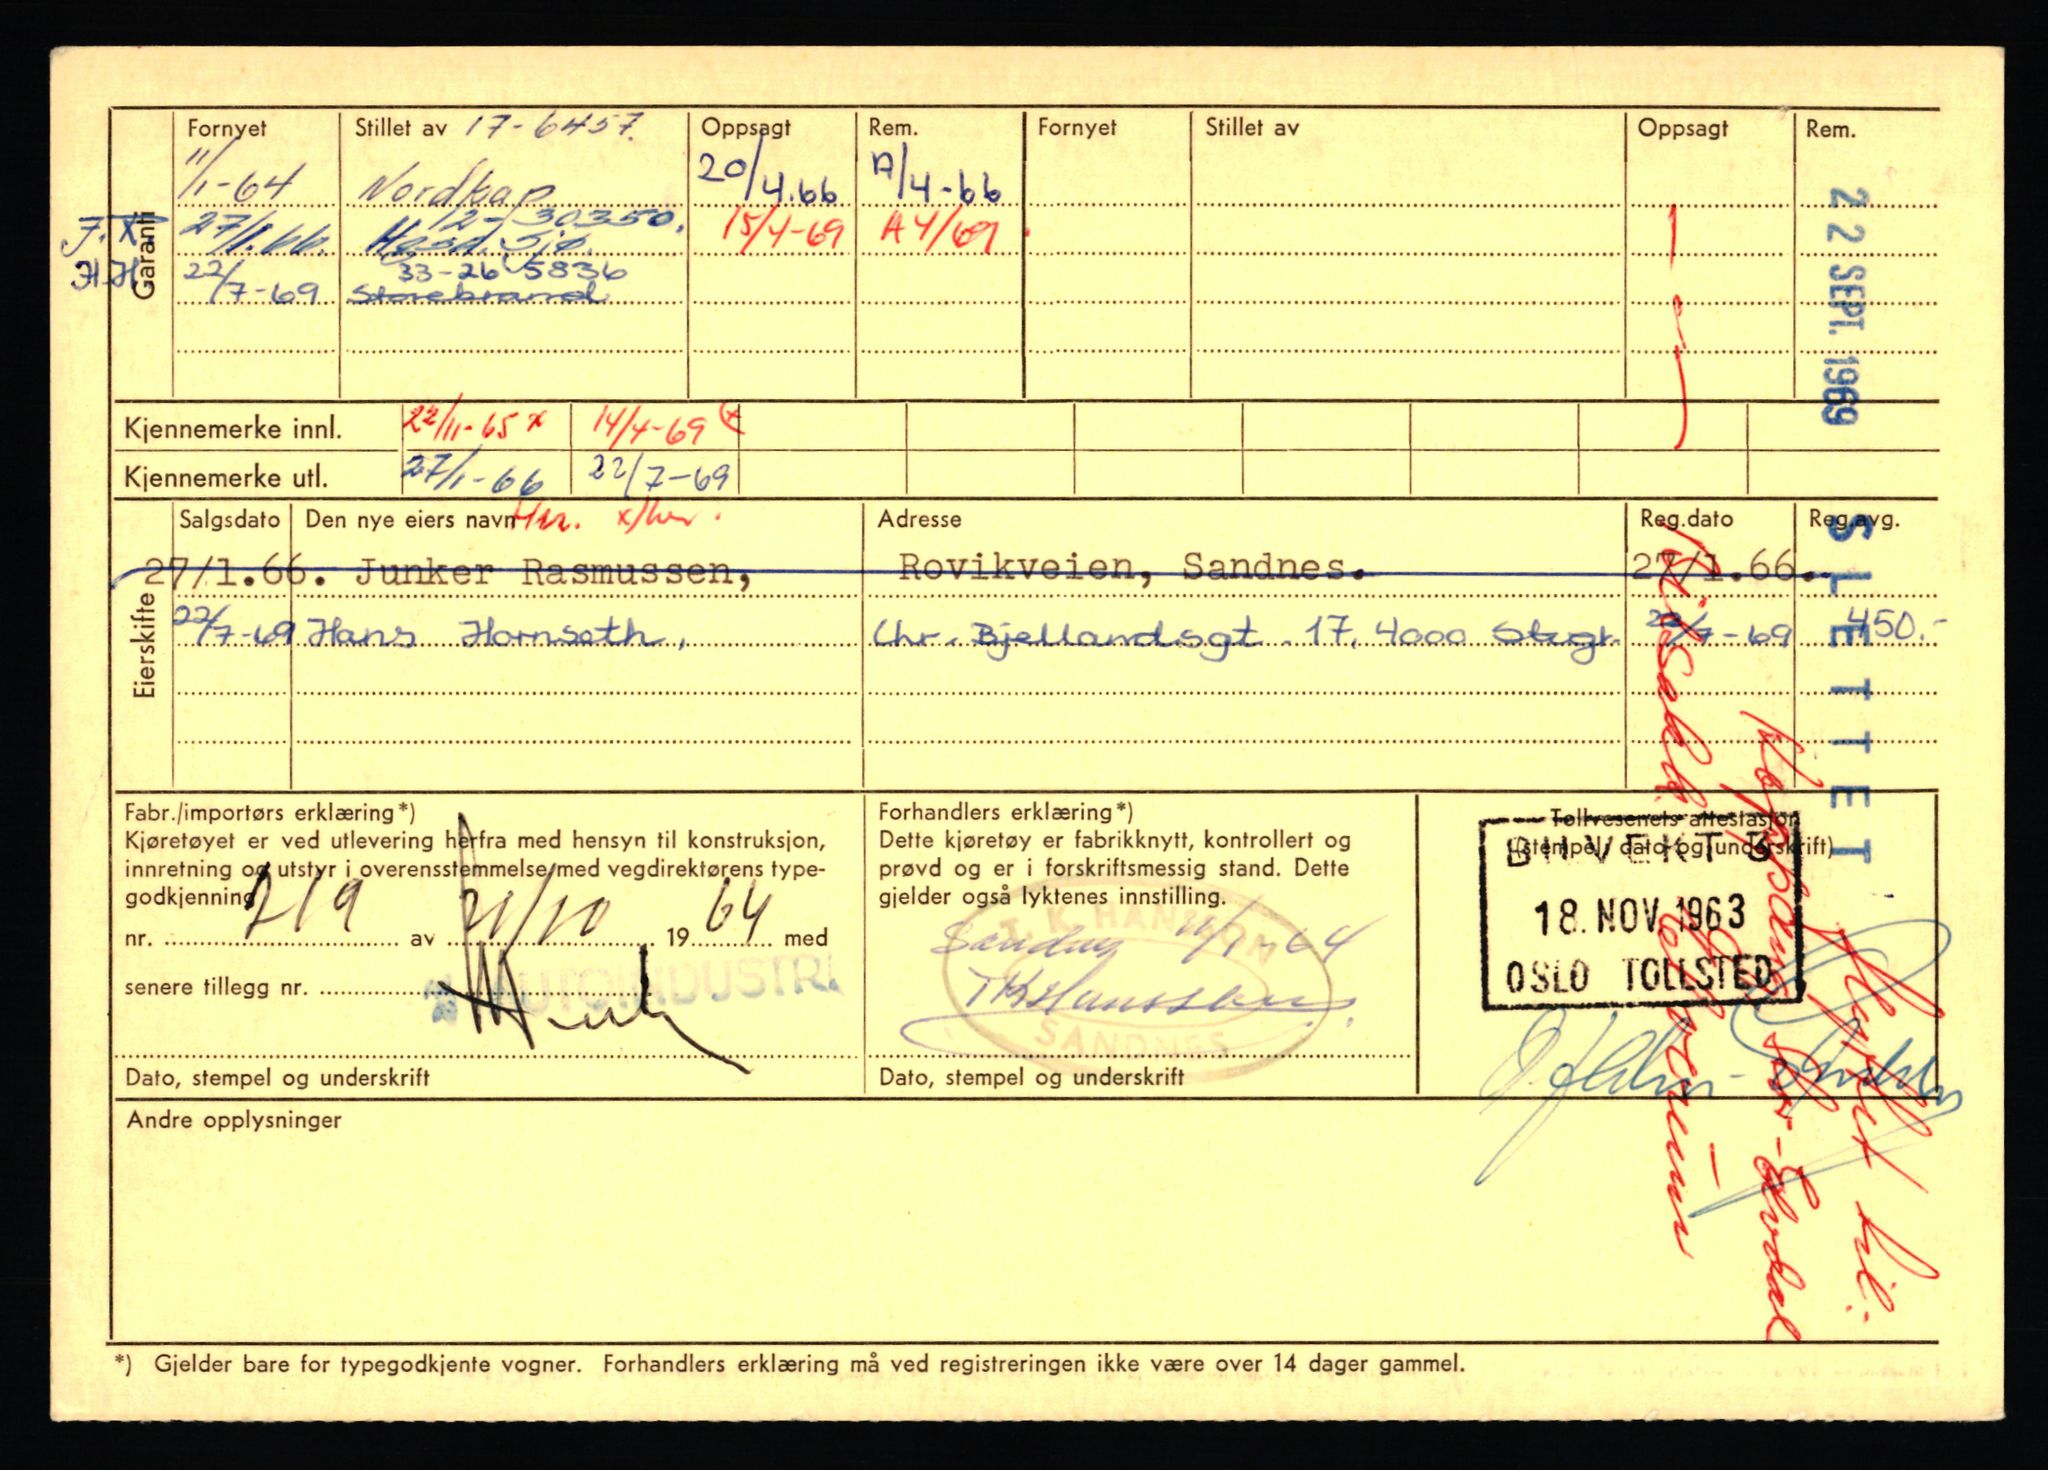 Fornyet Stillet av 17-6457. Oppsagt Rem. Fornyet Stillet av Oppsagt Rem.
11/1-64 Nordkap 20/4.66 A/4-66
Garanti
J.K. 27/1.66. 12-30350. 15/4-69 A4/69
Hasd. Sjø.
H.H 22/7-69 33-26 5836
Storebrand
22 SEPT. 1969
Kjennemerke innl. 22/11-65 x 14/4-69
Kjennemerke utl. 27/1-66 22/7-69
Salgsdato Den nye eiers navn Adresse Reg.dato Reg.avg.
27/1.66. Junker Rasmussen, Rovikveien, Sandnes. 27/1.66.
Eierskifte
22/7-69 Hans Hornseth, Chr. Bjellandsgt. 17, 4000 Stvgr. 22/7-69 450.-
SLETTET
Fabr./importørs erklæring*)
Kjøretøyet er ved utlevering herfra med hensyn til konstruksjon,
innretning og utstyr i overensstemmelse med vegdirektørens type-
godkjenning
nr. 219 av 21/10 1964 med
senere tillegg nr.
AUTOINDUSTRI
Dato, stempel og underskrift
Forhandlers erklæring*)
Dette kjøretøy er fabrikknytt, kontrollert og
prøvd og er i forskriftsmessig stand. Dette
gjelder også lyktenes innstilling.
T. K. HANSSON
SANDNES
Sandnes 11/1-64
TKHansson
Dato, stempel og underskrift
Tollvesenets attestasjon
(stempel, dato og underskrift)
BILVEKT 3
18. NOV. 1963
OSLO TOLLSTED
Flyttet til
Koppang Stor-Elvdal
Andre opplysninger
*) Gjelder bare for typegodkjente vogner. Forhandlers erklæring må ved registreringen ikke være over 14 dager gammel.